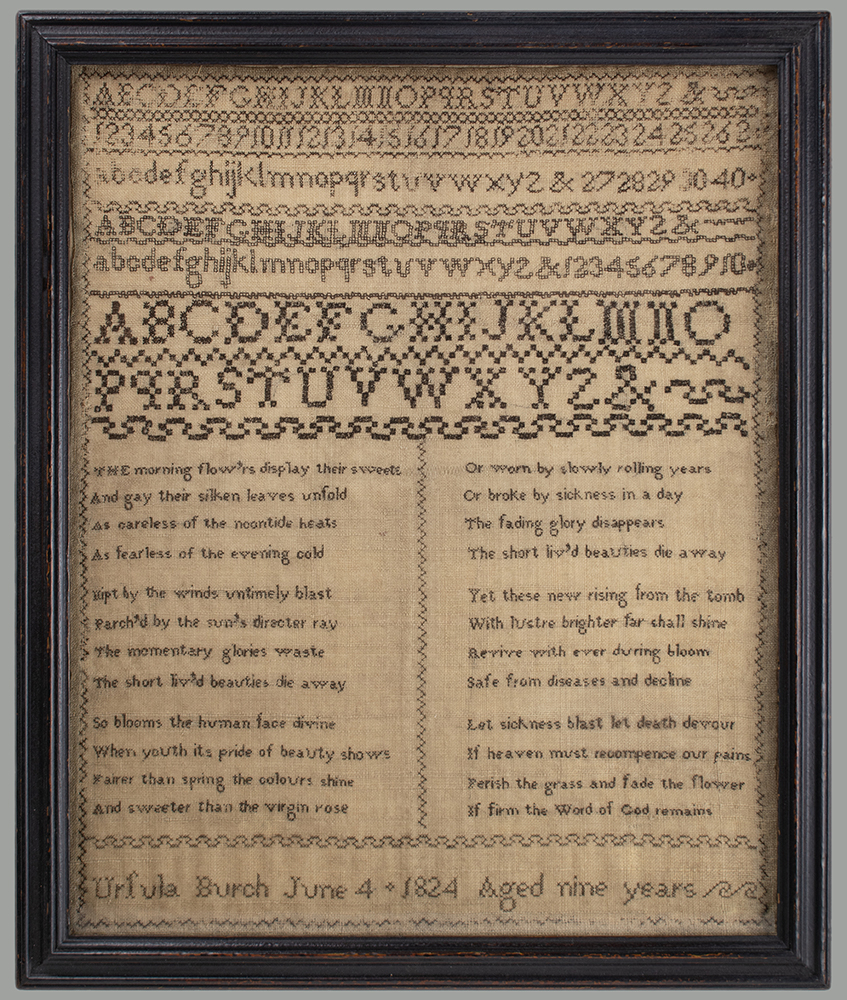 ABCDEFGHIJKLMNOPQRSTUVWXYZ &
1 2 3 4 5 6 7 8 9 10 11 12 13 14 15 16 17 18 19 20 21 22 23 24 25 26 2
abcdefghijklmnopqrstuvwxyz & 27 28 29 30 40
ABCDEFGHIJKLMNOPQRSTUVWXYZ &
abcdefghijklmnopqrstuvwxyz & 1 2 3 4 5 6 7 8 9 10
ABCDEFGHIJKLMNO
PQRSTUVWXYZ &
THE morning flow'rs display their sweets
And gay their silken leaves unfold
As careless of the noontide heats
As fearless of the evening cold
Nipt by the winds untimely blast
Parch'd by the sun's directer ray
The momentary glories waste
The short liv'd beauties die away
So blooms the human face divine
When youth its pride of beauty shows
Fairer than spring the colours shine
And sweeter than the virgin rose
Or worn by slowly rolling years
Or broke by sickness in a day
The fading glory disappears
The short liv'd beauties die away
Yet these new rising from the tomb
With lustre brighter far shall shine
Revive with ever during bloom
Safe from diseases and decline
Let sickness blast let death devour
If heaven must recompence our pains
Perish the grass and fade the flower
If firm the Word of God remains
Urſula Burch June 4 1824 Aged nine years